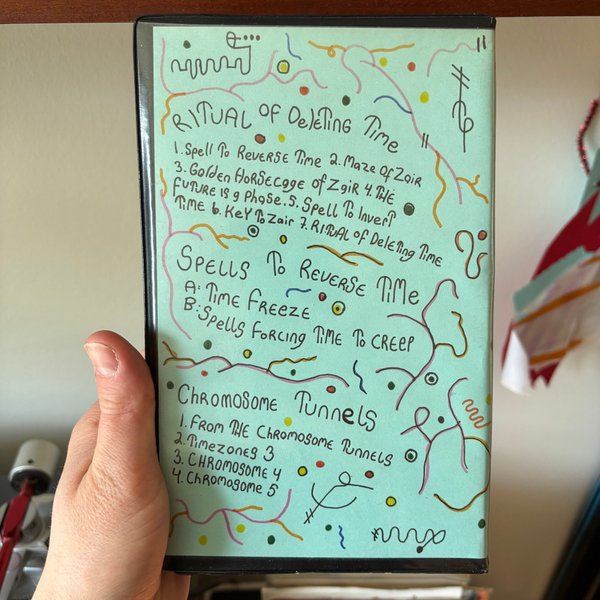 RITUAL of DeleTing Time
1. Spell To Reverse Time 2. Maze of Zair
3. Golden Horsecage of Zair 4. THE
Future is a Phase. 5. Spell To Invert
Time 6. Key To Zair 7. RITUAL of Deleting Time
Spells To Reverse Time
A: Time Freeze
B: Spells Forcing Time To Creep
Chromosome Tunnels
1. From THE Chromosome Tunnels
2. Timezones 3
3. CHROMOSOME 4
4. Chromosome 5